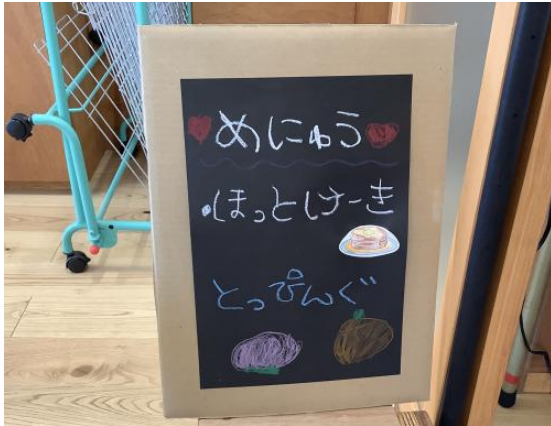 めにゅう
・ほっとけーき
とっぴんぐ